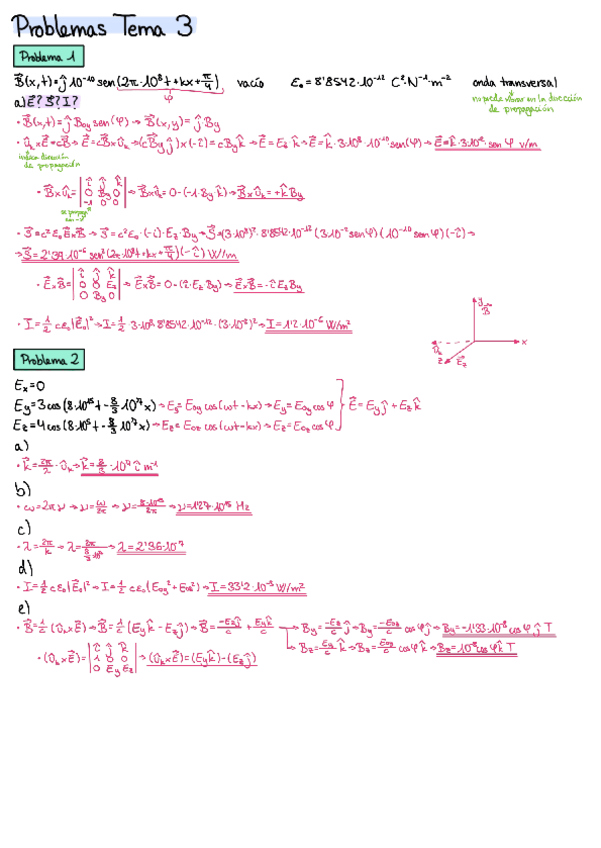 Problemas Tema 3
Problema 1
B⃗(x,t)=ĵ 10⁻¹⁰ sen(2π·10⁸t+kx+π/4) vacío E₀=8'8542·10⁻¹² C²·N⁻¹·m⁻² onda transversal
φ
no puede vibrar en la dirección
de propagación
a) E⃗? S⃗? I?
· B⃗(x,t)=ĵ B₀y sen(φ) → B⃗(x,y)=ĵ By
· ûₖ×E⃗=cB⃗ → E⃗=cB⃗×ûₖ → (cByĵ)×(-î)=cByk̂ → E⃗=E₂k̂ → E⃗=k̂·3·10⁸·10⁻¹⁰sen(φ) → E⃗=k̂·3·10⁻²·sen φ V/m
indica dirección
de propagación
· B⃗×ûₖ=|î ĵ k̂
0 By 0
-1 0 0| → B⃗×ûₖ=0-(-1·By k̂) → B⃗×ûₖ=+k̂By
se propaga
en -x
· S⃗=c²ε₀E⃗×B⃗ → S⃗=c²ε₀·(-î)·Ez·By → S⃗=(3·10⁸)²·8'8542·10⁻¹² (3·10⁻²senφ)(10⁻¹⁰senφ)(-î) →
→ S⃗=2'39·10⁻⁶ sen²(2π·10⁸t+kx+π/4)(-î) W/m
· E⃗×B⃗=|î ĵ k̂
0 0 Ez
0 By 0| → E⃗×B⃗=0-(î·EzBy) → E⃗×B⃗=-îEzBy
· I=½cε₀|E⃗₀|² → I=½·3·10⁸·8'8542·10⁻¹²·(3·10⁻²)² → I=1'2·10⁻⁶ W/m²
y
B⃗
x
ûₖ
z
E⃗z
Problema 2
Ex=0
Ey=3cos(8·10¹⁵t-8/3·10⁷x) → Ey=E₀y cos(ωt-kx) → Ey=E₀y cosφ
E⃗=Eyĵ+Ezk̂
Ez=4cos(8·10¹⁵t-8/3·10⁷x) → Ez=E₀z cos(ωt-kx) → Ez=E₀z cosφ
a)
· k⃗=2π/λ·ûₖ → k⃗=8/3·10⁷ î m⁻¹
b)
· ω=2πν → ν=ω/2π → ν=8·10¹⁵/2π → ν=1'27·10¹⁵ Hz
c)
· λ=2π/k → λ=2π/(8/3·10⁷) → λ=2'36·10⁻⁷
d)
· I=½cε₀|E⃗₀|² → I=½cε₀(E₀y²+E₀z²) → I=33'2·10⁻³ W/m²
e)
· B⃗=1/c(ûₖ×E⃗) → B⃗=1/c(Eyk̂-Ezĵ) → B⃗=-Ezĵ/c+Eyk̂/c → By=-Ez/c ĵ → By=-E₀z/c cosφĵ → By=-1'33·10⁻⁸cosφĵ T
→ Bz=Ey/c k̂ → Bz=E₀y/c cosφk̂ → Bz=10⁻⁸cosφk̂ T
· (ûₖ×E⃗)=|î ĵ k̂
1 0 0
0 Ey Ez| → (ûₖ×E⃗)=(Eyk̂)-(Ezĵ)